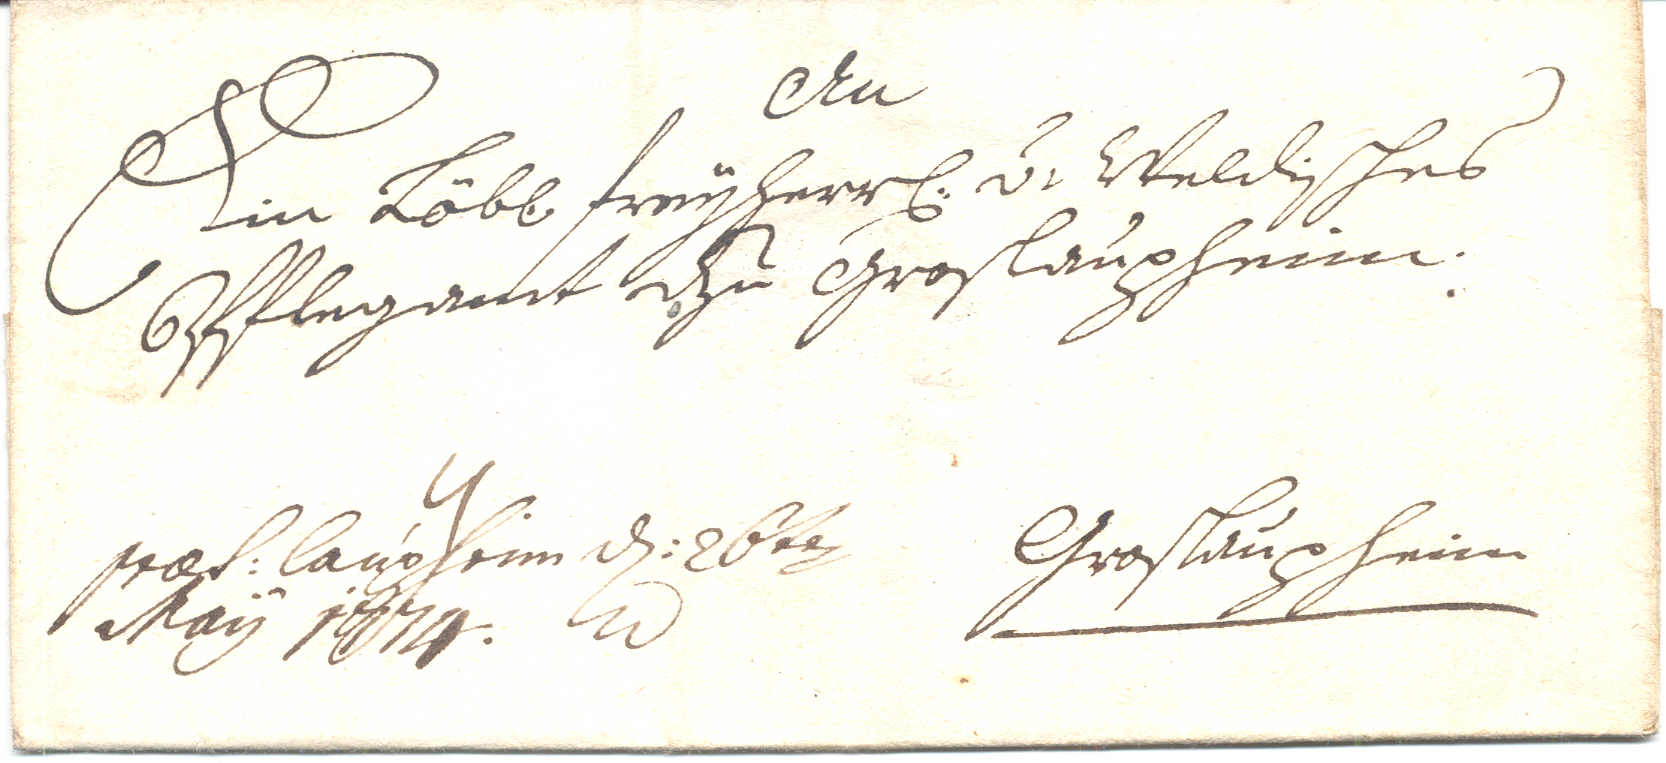 An
Ein Löbl. freyherrl. v. Weldisches
Pflegamt zu Groslaupheim.
præs: Laupheim d: 26ten
Maÿ 1814.
Groslaupheim